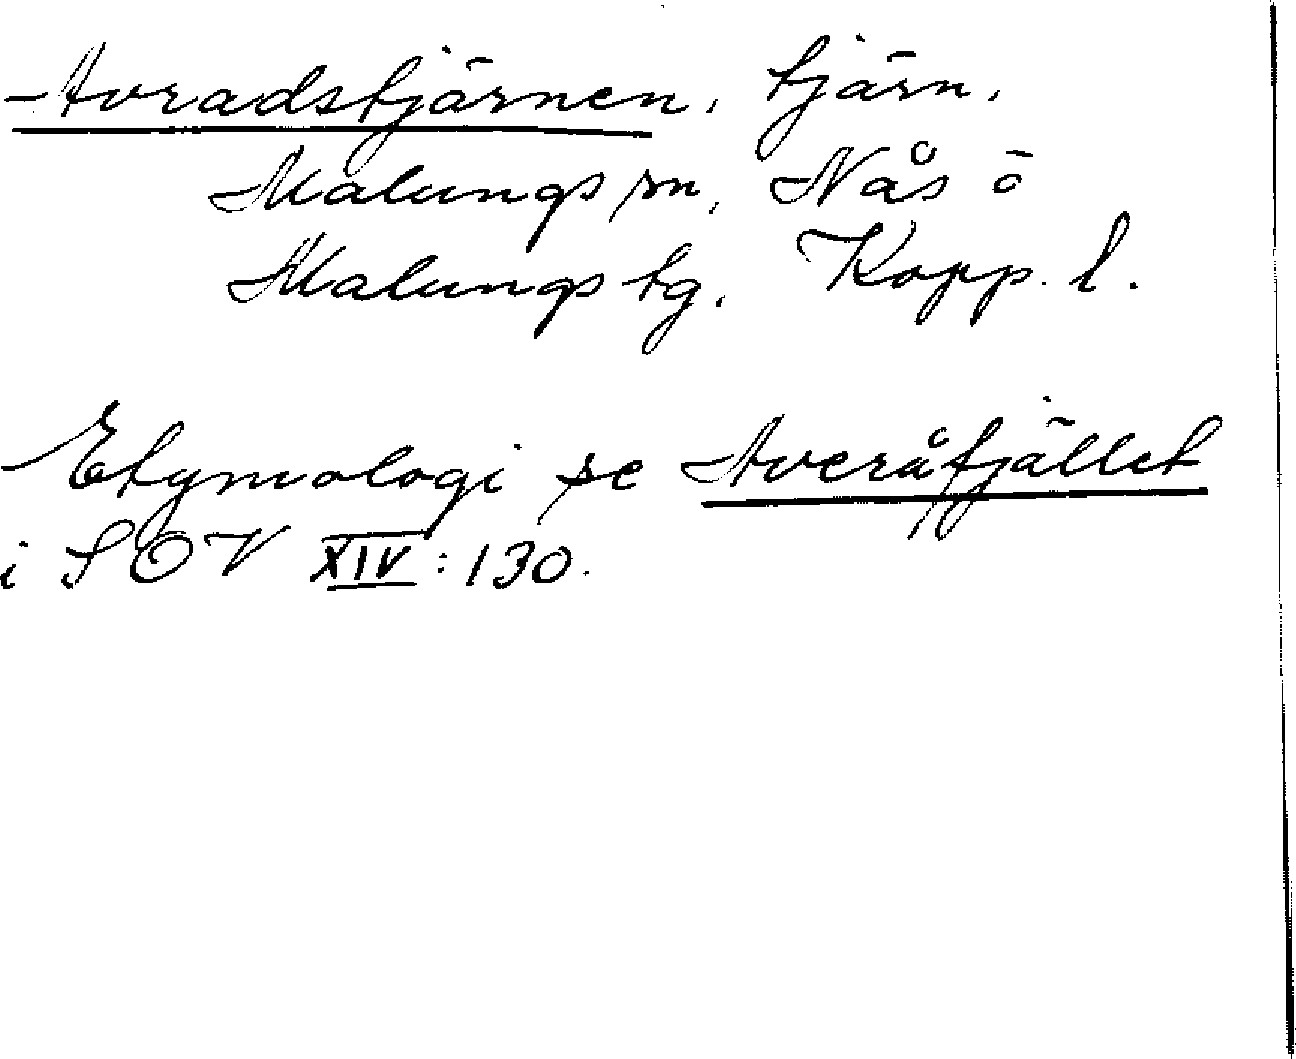 Avradstjärnen, tjärn,
Malungs sn, Nås ö
Malungs tg. Kopp. l.
Etymologi se Averåfjället
i SOV XIV:130.